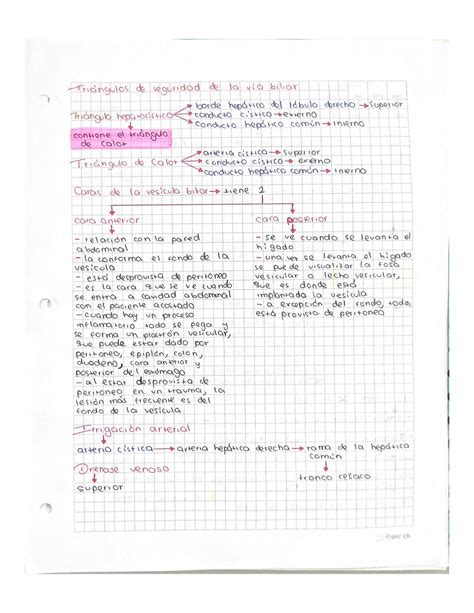 Triángulos de seguridad de la vía biliar
borde hepático del lóbulo derecho → Superior
Triángulo hepatocístico → conducto cístico → externo
conducto hepático común → Interno
contiene el triángulo
de Calot
arteria cística → Superior
Triángulo de Calot → conducto cístico → externo
conducto hepático común → Interno
Caras de la vesícula biliar → tiene 2
cara anterior
- relación con la pared
abdominal
- la conforma el fondo de la
vesícula
- está desprovista de peritoneo
- es la cara que se ve cuando
se entra a cavidad abdominal
con el paciente acostado
- cuando hay un proceso
inflamatorio todo se pega y
se forma un plastrón vesicular,
que puede estar dado por
peritoneo, epiplón, colon,
duodeno, cara anterior y
posterior del estómago
- al estar desprovista de
peritoneo, en un trauma, la
lesión más frecuente es del
fondo de la vesícula
cara posterior
- se ve cuando se levanta el
hígado
- una vez se levanta el hígado
se puede visualizar la fosa
vesicular o lecho vesicular,
que es donde está
implantada la vesícula
- a excepción del fondo, toda
está provista de peritoneo
Irrigación arterial
arteria cística → arteria hepática derecha → rama de la hepática
común
tronco celíaco
① Drenaje venoso
superior